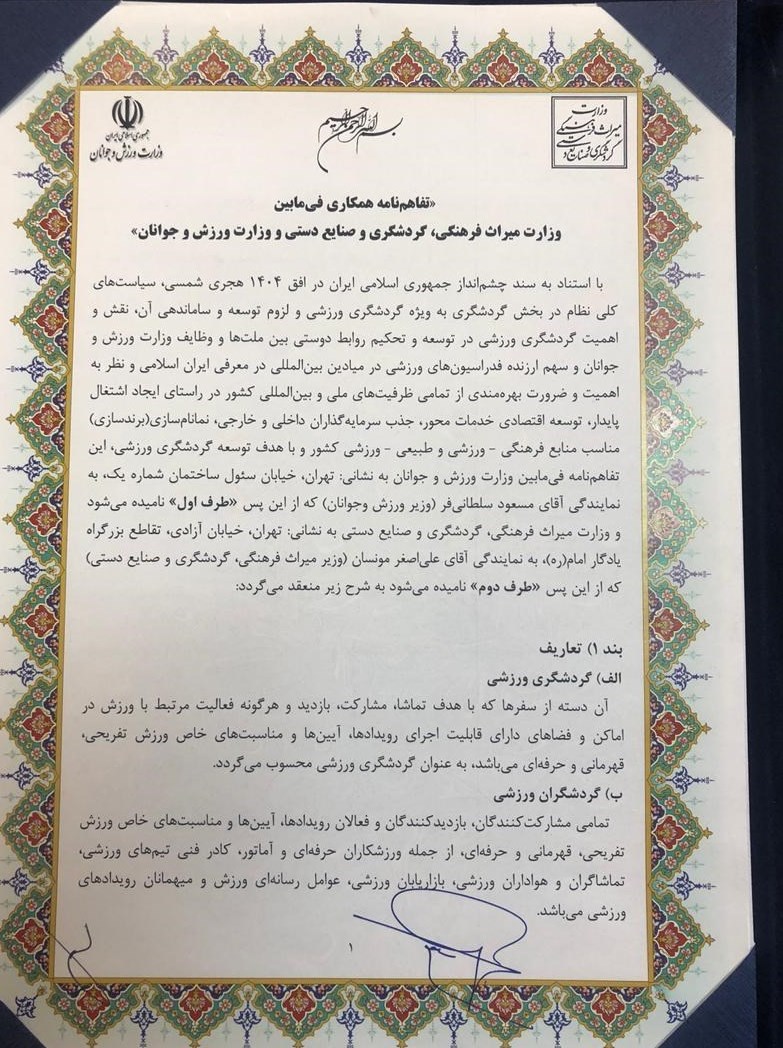 بسم الله الرحمن الرحیم
وزارت
میراث فرهنگی
گردشگری و صنایع دستی
جمهوری اسلامی ایران
وزارت ورزش و جوانان
«تفاهم‌نامه همکاری فی‌مابین
وزارت میراث فرهنگی، گردشگری و صنایع دستی و وزارت ورزش و جوانان»
با استناد به سند چشم‌انداز جمهوری اسلامی ایران در افق ۱۴۰۴ هجری شمسی، سیاست‌های
کلی نظام در بخش گردشگری به ویژه گردشگری ورزشی و لزوم توسعه و ساماندهی آن، نقش و
اهمیت گردشگری ورزشی در توسعه و تحکیم روابط دوستی بین ملت‌ها و وظایف وزارت ورزش و
جوانان و سهم ارزنده فدراسیون‌های ورزشی در میادین بین‌المللی در معرفی ایران اسلامی و نظر به
اهمیت و ضرورت بهره‌مندی از تمامی ظرفیت‌های ملی و بین‌المللی کشور در راستای ایجاد اشتغال
پایدار، توسعه اقتصادی خدمات محور، جذب سرمایه‌گذاران داخلی و خارجی، نمانام‌سازی(برندسازی)
مناسب منابع فرهنگی - ورزشی و طبیعی - ورزشی کشور و با هدف توسعه گردشگری ورزشی، این
تفاهم‌نامه فی‌مابین وزارت ورزش و جوانان به نشانی: تهران، خیابان سئول ساختمان شماره یک، به
نمایندگی آقای مسعود سلطانی‌فر (وزیر ورزش وجوانان) که از این پس «طرف اول» نامیده می‌شود
و وزارت میراث فرهنگی، گردشگری و صنایع دستی به نشانی: تهران، خیابان آزادی، تقاطع بزرگراه
یادگار امام(ره)، به نمایندگی آقای علی‌اصغر مونسان (وزیر میراث فرهنگی، گردشگری و صنایع دستی)
که از این پس «طرف دوم» نامیده می‌شود به شرح زیر منعقد می‌گردد:
بند ۱) تعاریف
الف) گردشگری ورزشی
آن دسته از سفرها که با هدف تماشا، مشارکت، بازدید و هرگونه فعالیت مرتبط با ورزش در
اماکن و فضاهای دارای قابلیت اجرای رویدادها، آیین‌ها و مناسبت‌های خاص ورزش تفریحی،
قهرمانی و حرفه‌ای می‌باشد، به عنوان گردشگری ورزشی محسوب می‌گردد.
ب) گردشگران ورزشی
تمامی مشارکت‌کنندگان، بازدیدکنندگان و فعالان رویدادها، آیین‌ها و مناسبت‌های خاص ورزش
تفریحی، قهرمانی و حرفه‌ای، از جمله ورزشکاران حرفه‌ای و آماتور، کادر فنی تیم‌های ورزشی،
تماشاگران و هواداران ورزشی، بازاریابان ورزشی، عوامل رسانه‌ای ورزش و میهمانان رویدادهای
ورزشی می‌باشد.
۱